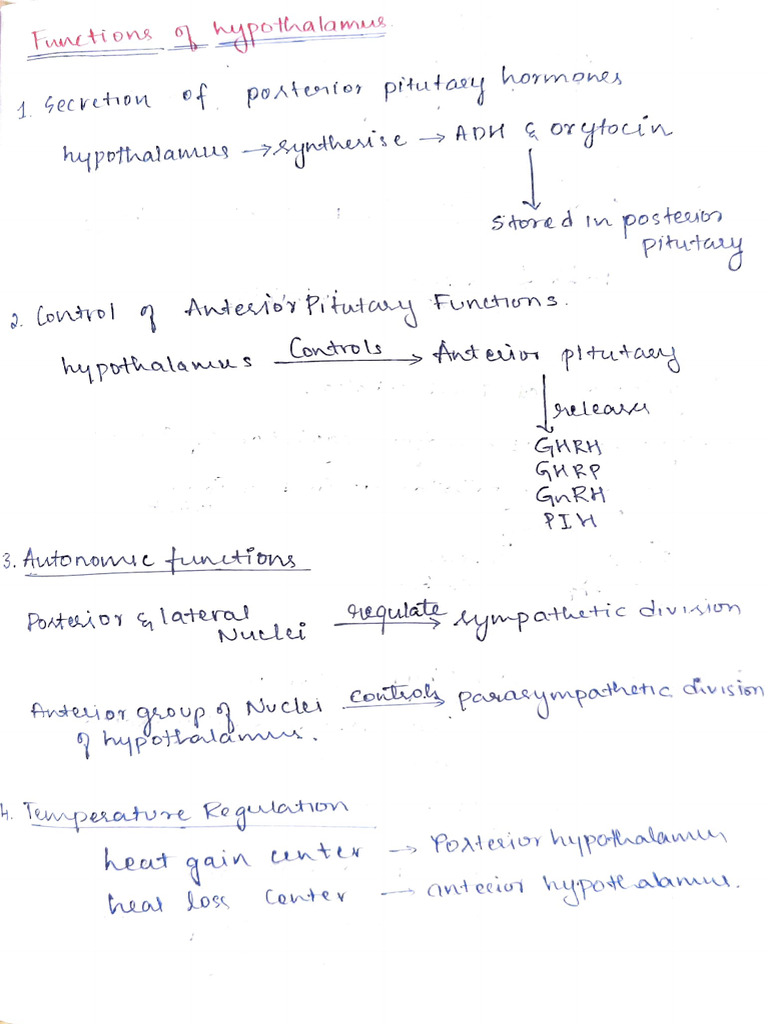 Functions of hypothalamus.
1. Secretion of posterior pitutary hormones
hypothalamus → synthesise → ADH & oxytocin
Stored in posterior
pitutary
2. Control of Anterior Pitutary Functions.
hypothalamus Controls → Anterior pitutary
releases
GHRH
GHRP
GnRH
PIH
3. Autonomic functions
Posterior & lateral
Nuclei regulate → sympathetic division
Anterior group of Nuclei controls → parasympathetic division
of hypothalamus.
4. Temperature Regulation
heat gain center → Posterior hypothalamus
heat loss center → anterior hypothalamus.